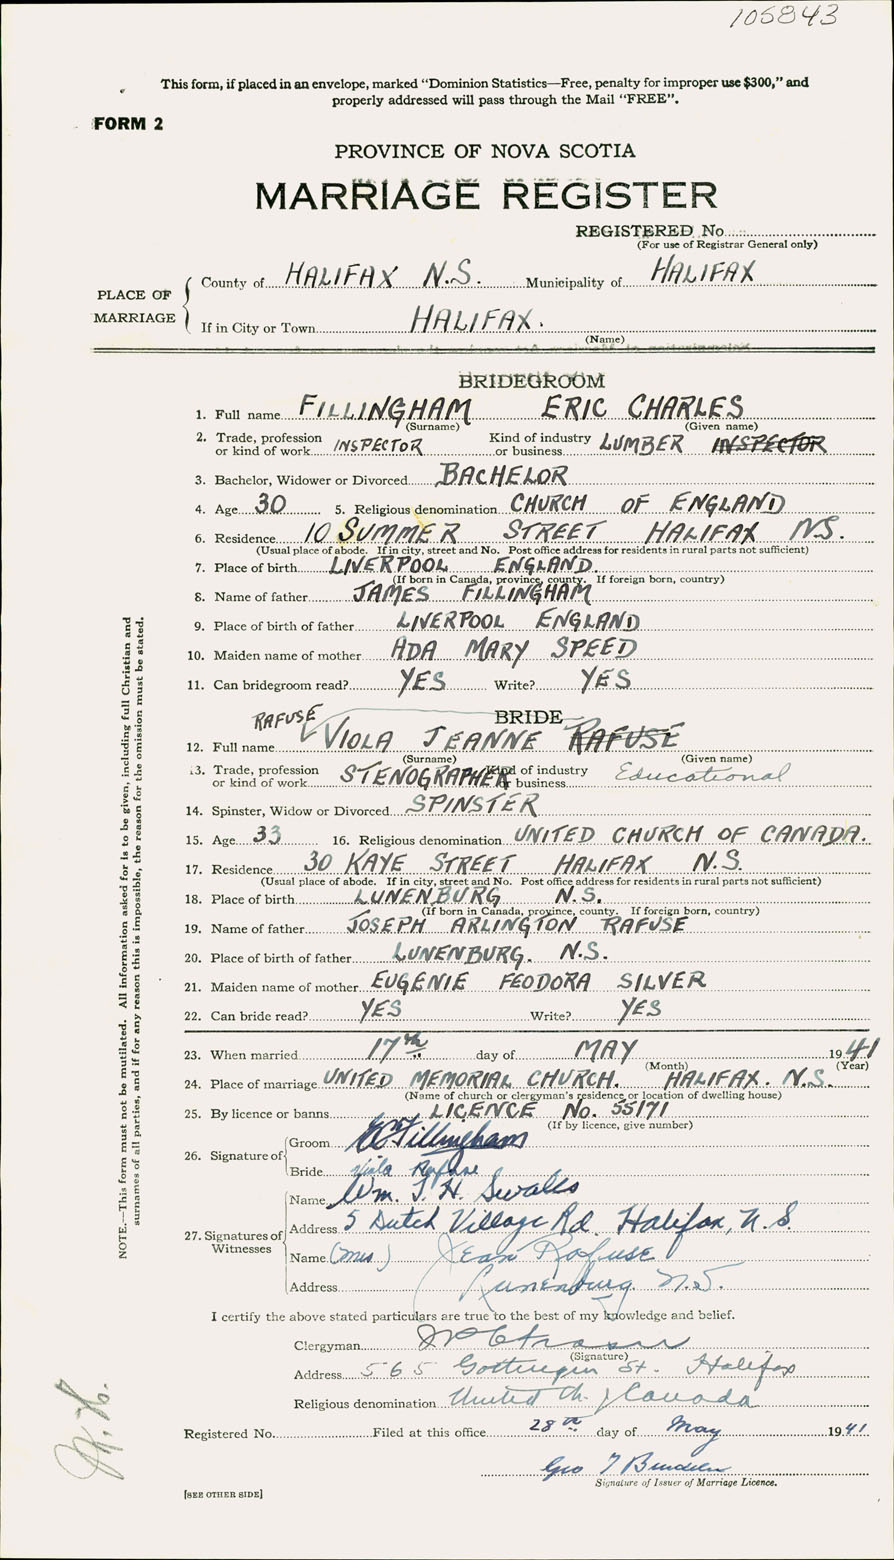 105843
This form, if placed in an envelope, marked “Dominion Statistics—Free, penalty for improper use $300,” and
properly addressed will pass through the Mail “FREE”.
FORM 2
PROVINCE OF NOVA SCOTIA
MARRIAGE REGISTER
REGISTERED No.
(For use of Registrar General only)
PLACE OF MARRIAGE
County of HALIFAX N.S. Municipality of HALIFAX
If in City or Town HALIFAX.
(Name)
BRIDEGROOM
1. Full name FILLINGHAM ERIC CHARLES
(Surname) (Given name)
2. Trade, profession or kind of work INSPECTOR Kind of industry or business LUMBER INSPECTOR
3. Bachelor, Widower or Divorced BACHELOR
4. Age 30 5. Religious denomination CHURCH OF ENGLAND
6. Residence 10 SUMMER STREET HALIFAX N.S.
(Usual place of abode. If in city, street and No. Post office address for residents in rural parts not sufficient)
7. Place of birth LIVERPOOL ENGLAND.
(If born in Canada, province, county. If foreign born, country)
8. Name of father JAMES FILLINGHAM
9. Place of birth of father LIVERPOOL ENGLAND
10. Maiden name of mother ADA MARY SPEED
11. Can bridegroom read? YES Write? YES
BRIDE
RAFUSE
12. Full name VIOLA JEANNE RAFUSE
(Surname) (Given name)
13. Trade, profession or kind of work STENOGRAPHER Kind of industry or business Educational
14. Spinster, Widow or Divorced SPINSTER
15. Age 33 16. Religious denomination UNITED CHURCH OF CANADA.
17. Residence 30 KAYE STREET HALIFAX N.S.
(Usual place of abode. If in city, street and No. Post office address for residents in rural parts not sufficient)
18. Place of birth LUNENBURG N.S.
(If born in Canada, province, county. If foreign born, country)
19. Name of father JOSEPH ARLINGTON RAFUSE
20. Place of birth of father LUNENBURG. N.S.
21. Maiden name of mother EUGENIE FEODORA SILVER
22. Can bride read? YES Write? YES
23. When married 17th day of MAY 1941
(Month) (Year)
24. Place of marriage UNITED MEMORIAL CHURCH. HALIFAX. N.S.
(Name of church or clergyman's residence or location of dwelling house)
25. By licence or banns LICENCE No. 55171
(If by licence, give number)
26. Signature of
Groom EC Fillingham
Bride Viola Rafuse
27. Signatures of Witnesses
Name Wm. J. H. Swales
Address 5 Dutch Village Rd. Halifax, N.S.
Name (Mrs) Jean Rafuse
Address Lunenburg. N.S.
I certify the above stated particulars are true to the best of my knowledge and belief.
Clergyman
(Signature)
Address 565 Gottingen St. Halifax
Religious denomination United Ch. of Canada
Registered No. Filed at this office 28th day of May 1941
Geo
Signature of Issuer of Marriage Licence.
[SEE OTHER SIDE]
NOTE.—This form must not be mutilated. All information asked for is to be given, including full Christian and
surnames of all parties, and if for any reason this is impossible, the reason for the omission must be stated.